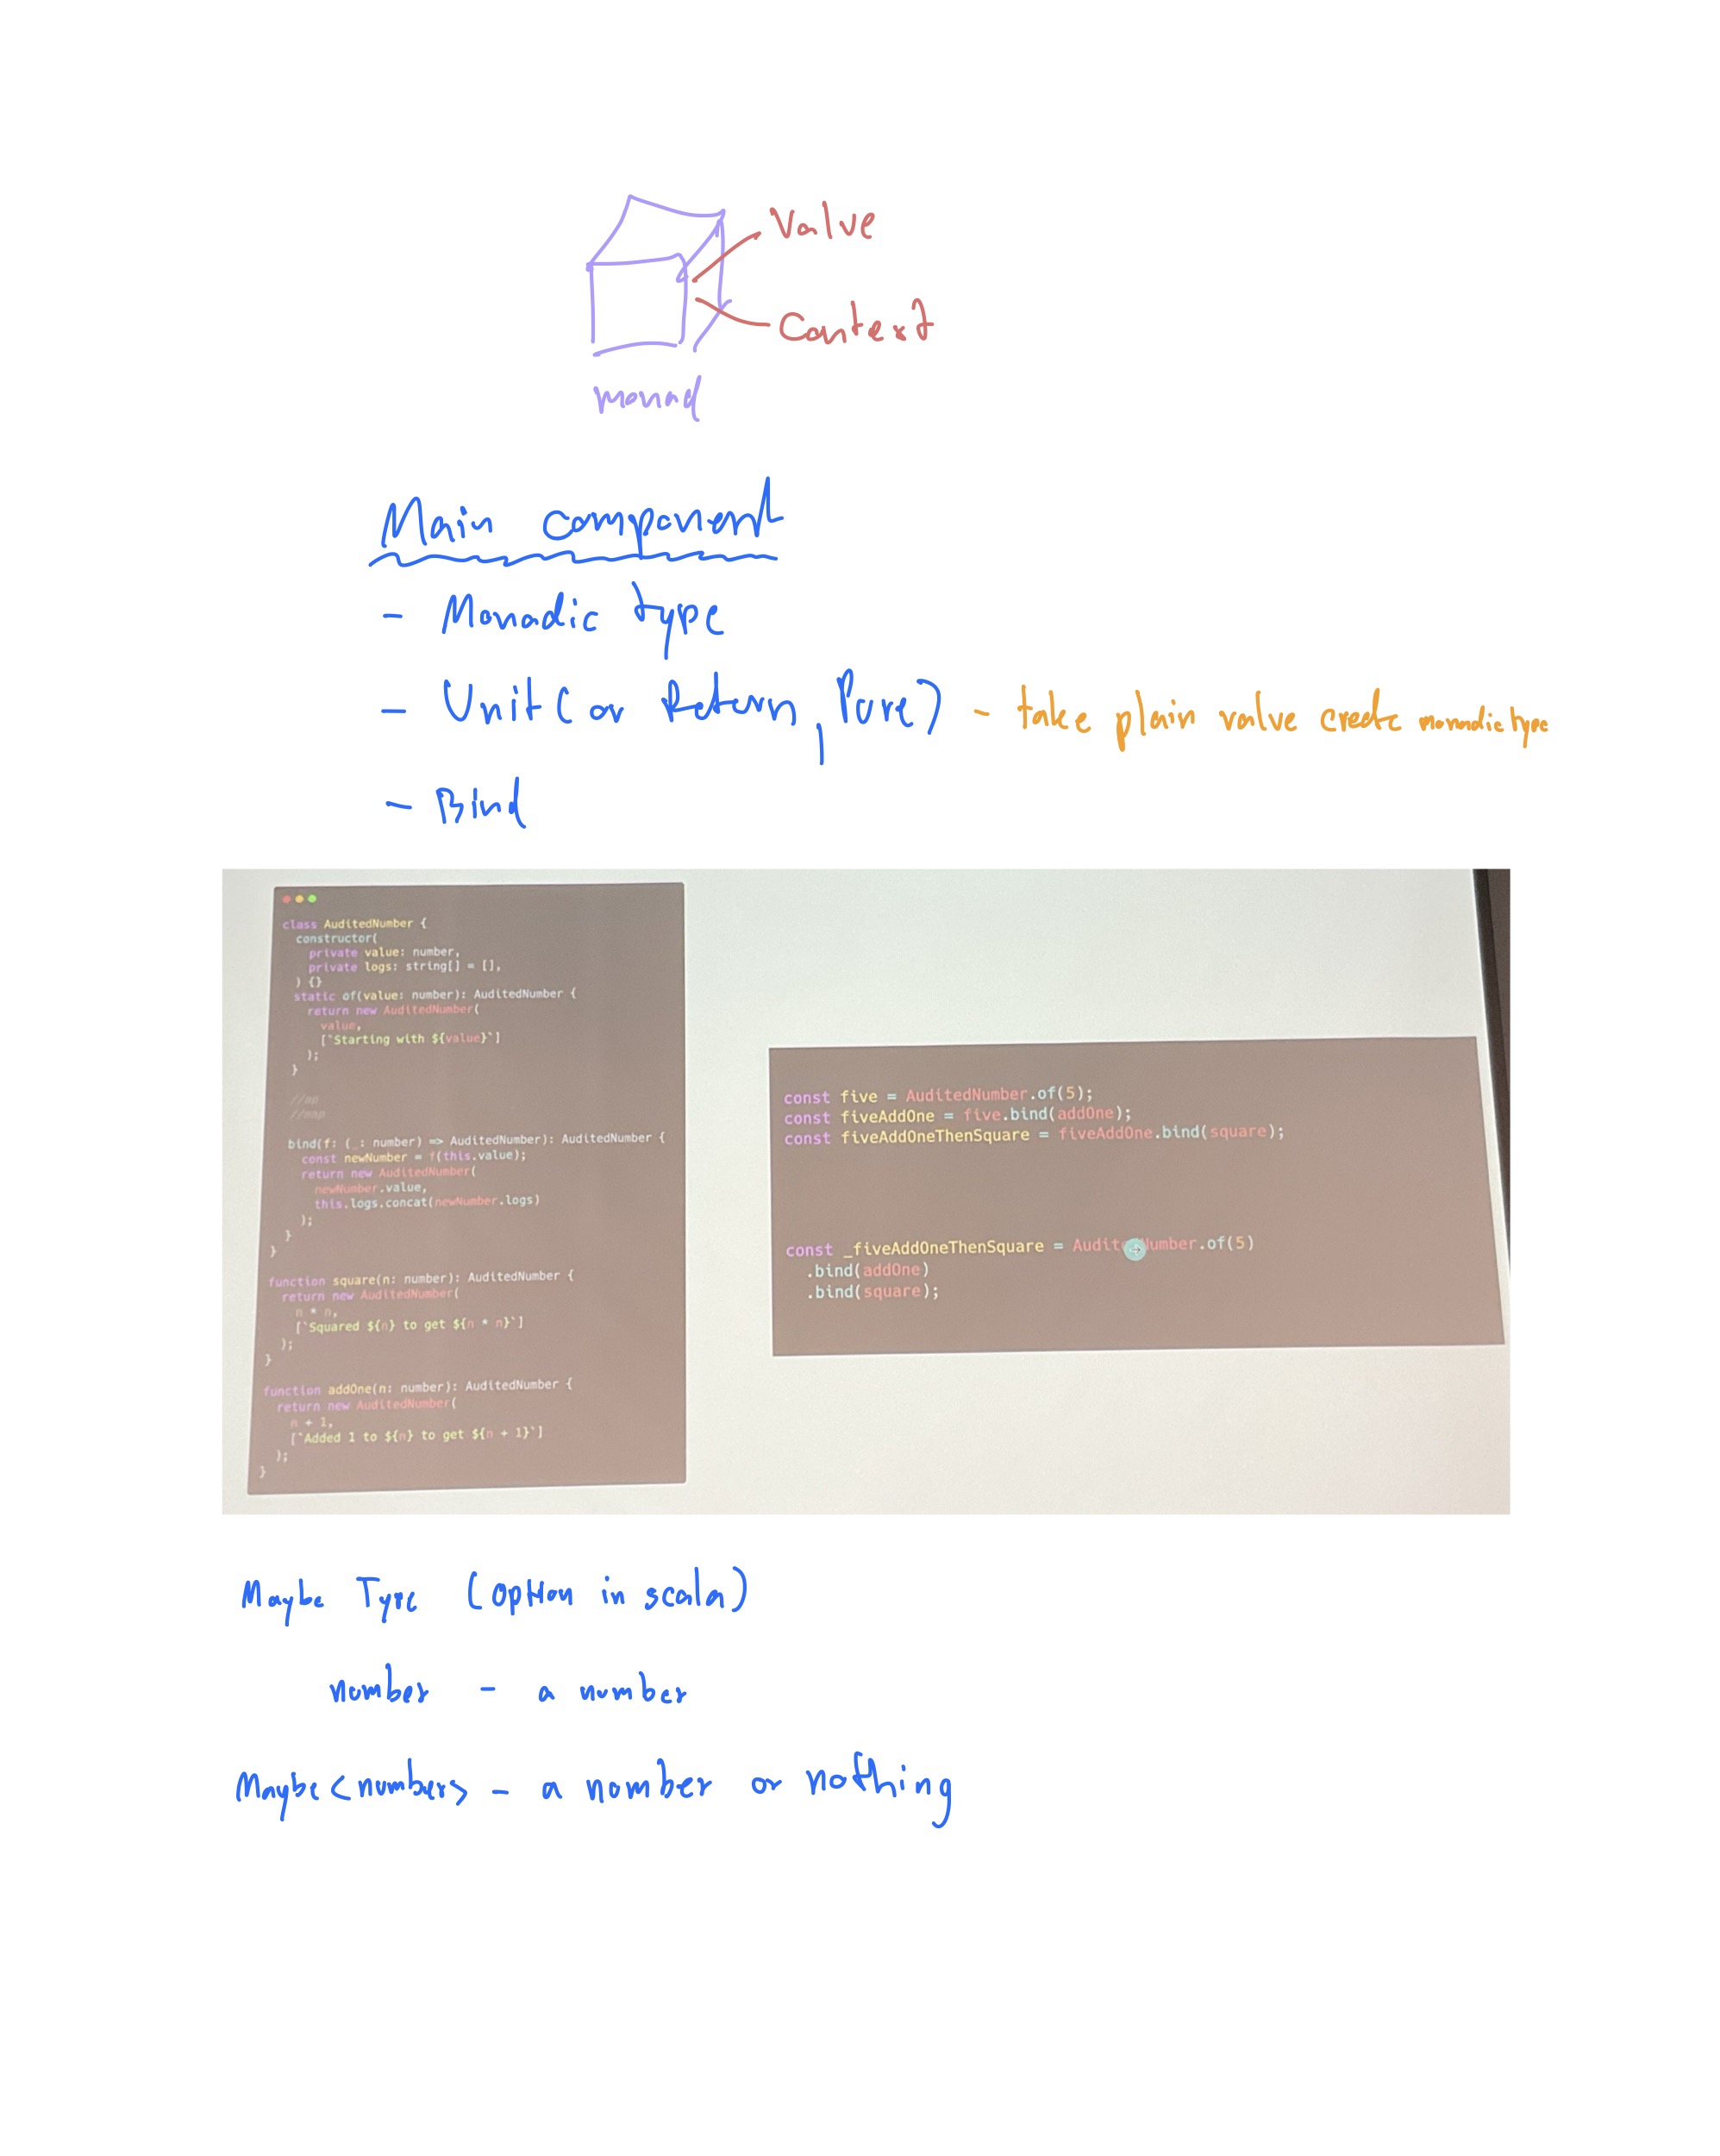 Value
Context
monad
Main component
- Monadic type
- Unit (or Return, Pure) - take plain value create monadic type
- Bind
class AuditedNumber {
constructor(
private value: number,
private logs: string[] = [],
) {}
static of(value: number): AuditedNumber {
return new AuditedNumber(
value,
[`Starting with ${value}`]
);
}
//map
bind(f: (_: number) => AuditedNumber): AuditedNumber {
const newNumber = f(this.value);
return new AuditedNumber(
newNumber.value,
this.logs.concat(newNumber.logs)
);
}
}
function square(n: number): AuditedNumber {
return new AuditedNumber(
n * n,
[`Squared ${n} to get ${n * n}`]
);
}
function addOne(n: number): AuditedNumber {
return new AuditedNumber(
n + 1,
[`Added 1 to ${n} to get ${n + 1}`]
);
}
const five = AuditedNumber.of(5);
const fiveAddOne = five.bind(addOne);
const fiveAddOneThenSquare = fiveAddOne.bind(square);
const _fiveAddOneThenSquare = AuditedNumber.of(5)
.bind(addOne)
.bind(square);
Maybe Type (option in scala)
number - a number
Maybe<number> - a number or nothing